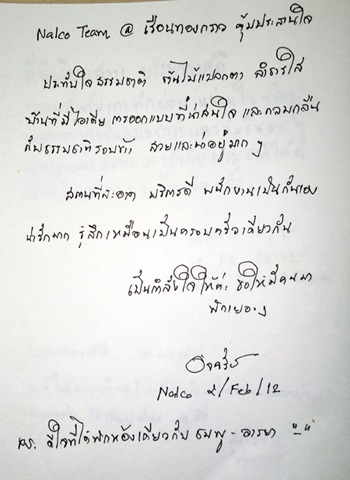 Nalco Team @ เรือนทองกวาว คุ้มประสานใจ
ประทับใจธรรมชาติ ต้นไม้แปลกตา ลำธารใส
บ้านที่มีไอเดีย การออกแบบที่น่าสนใจ และกลมกลืน
กับธรรมชาติรอบข้าง สวยและน่าอยู่มาก ๆ
สถานที่สะอาด บริการดี พนักงานเป็นกันเอง
น่ารักมาก รู้สึกเหมือนเป็นครอบครัวเดียวกัน
เป็นกำลังใจให้ค่ะ ขอให้มีคนมา
พักเยอะๆ
Nalco 2/Feb/12
ps. ดีใจที่ได้พักห้องเดียวกับ ชมพู่-อารยา